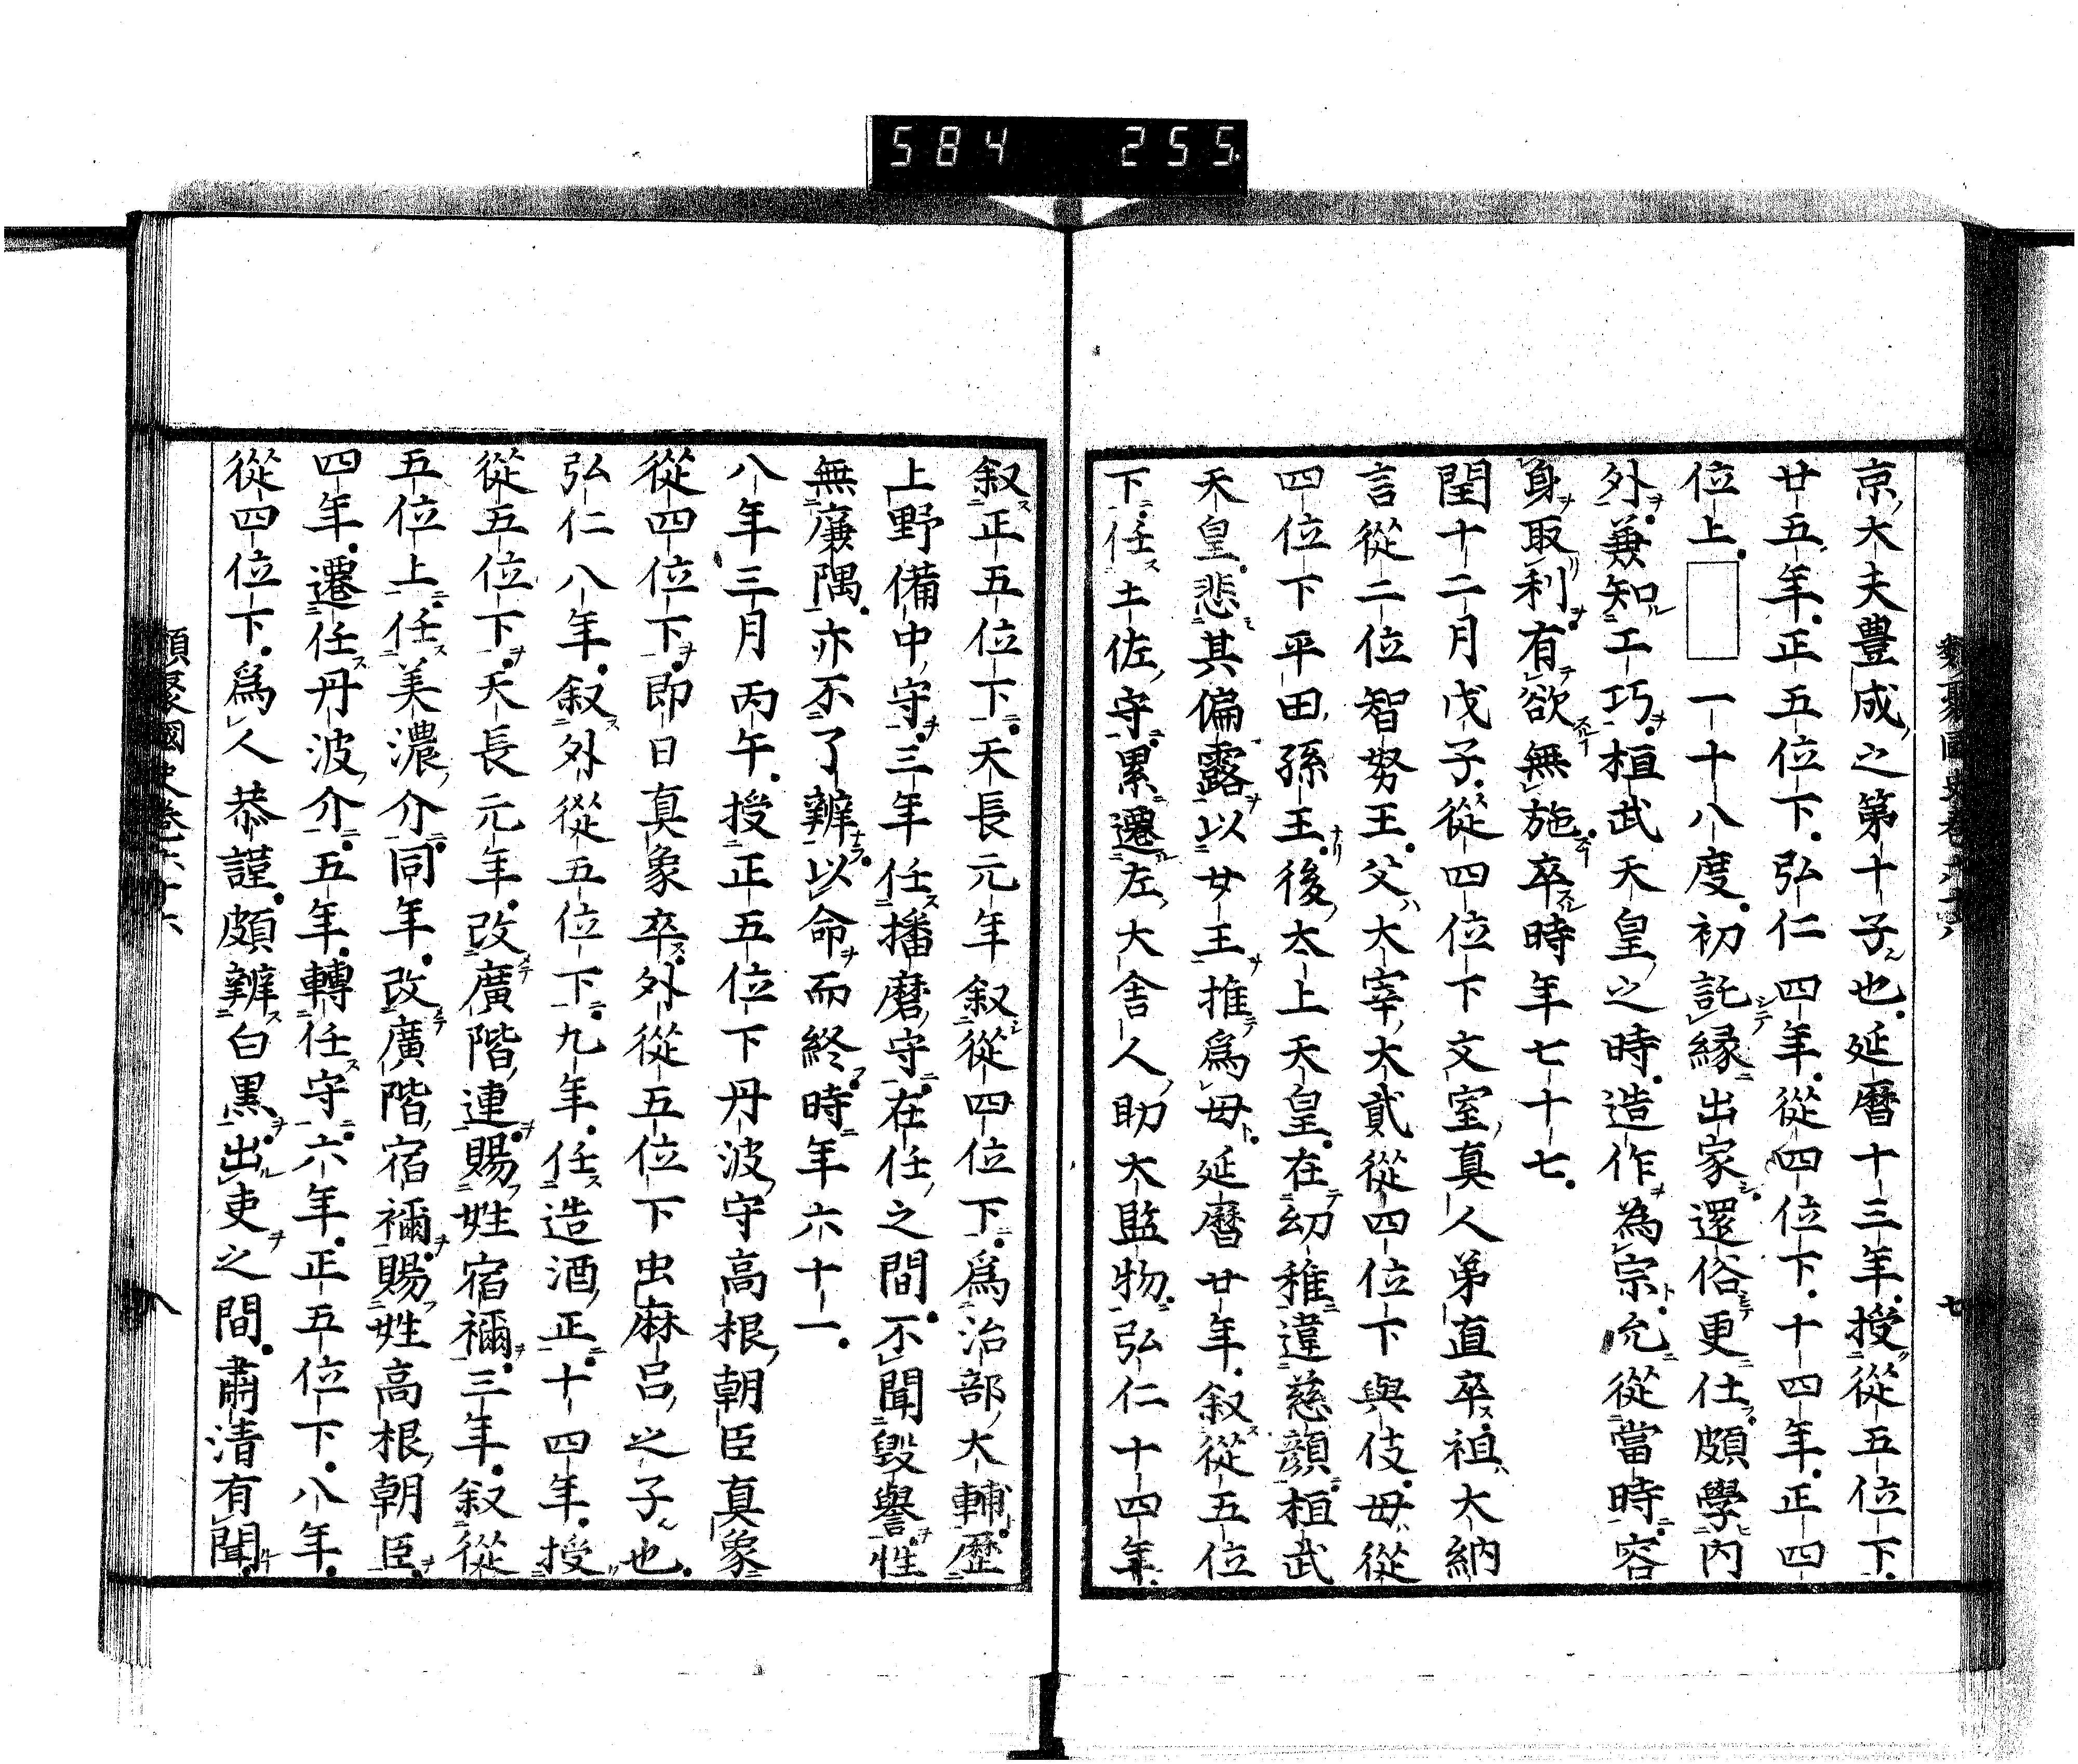 584 255
京大夫豊成之第十子也延暦十三年授從五位下
廿五年正五位下弘仁四年從四位下十四年正四
位上一十八度初託縁出家還俗更仕頗學内
外兼知工巧桓武天皇之時造作為宗允從當時容
身取利有欲無施卒時年七十七
閏十二月戊子從四位下文室真人弟直卒祖大納
言從二位智努王父大宰大貳從四位下與伎母從
四位下平田孫王後太上天皇在幼稚違慈顔桓武
天皇悲其偏露以女王推爲母延暦廿年叙從五位
下任土佐守累遷左大舎人助大監物弘仁十四年
叙正五位下天長元年叙從四位下爲治部大輔歴
上野備中守三年任播磨守在任之間不聞毀譽性
無廉隅亦不了辨以命而終時年六十一
八年三月丙午授正五位下丹波守高根朝臣真象
從四位下即日真象卒外從五位下虫麻呂之子也
弘仁八年叙外從五位下九年任造酒正十四年授
從五位下天長元年改廣階連賜姓宿禰三年叙從
五位上任美濃介同年改廣階宿禰賜姓高根朝臣
四年遷任丹波介五年轉任守六年正五位下八年
從四位下爲人恭謹頗辨白黒出吏之間肅清有聞
類聚國史巻六十六